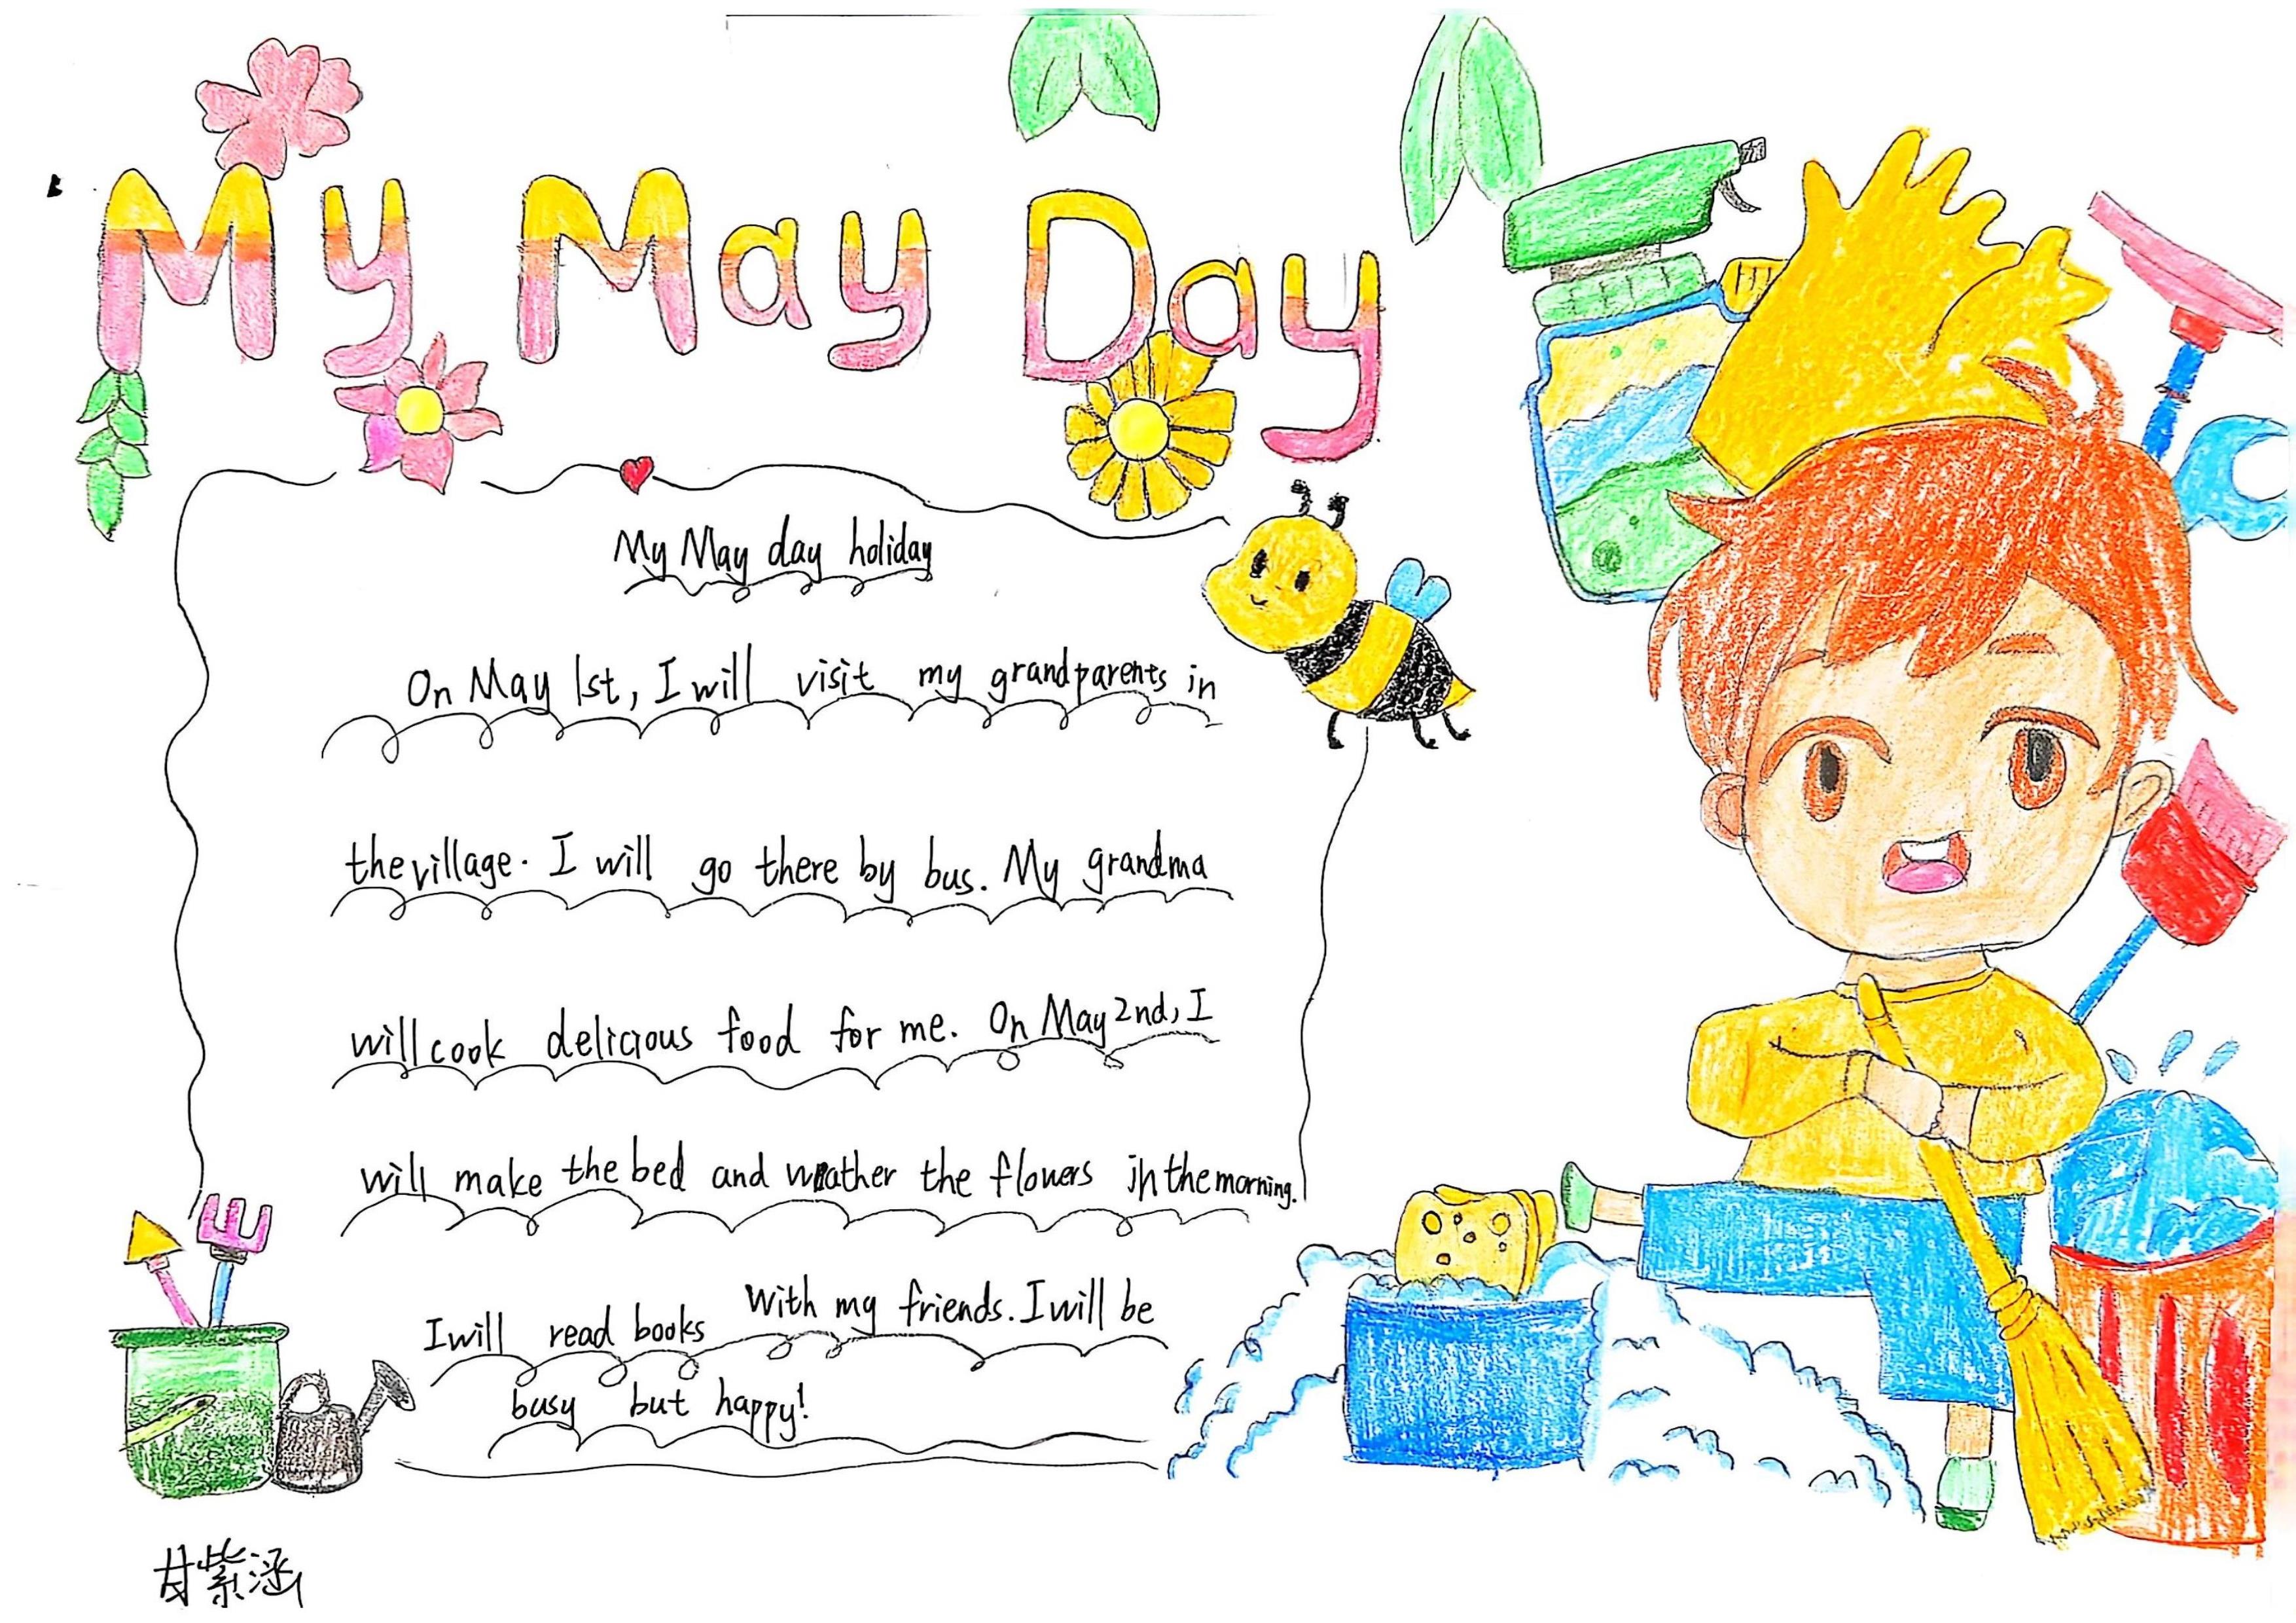 My May Day
My May day holiday
On May 1st, I will visit my grandparents in
the village. I will go there by bus. My grandma
will cook delicious food for me. On May 2nd, I
will make the bed and the flowers in the morning.
I will read books with my friends. I will be
busy but happy!
甘紫涵